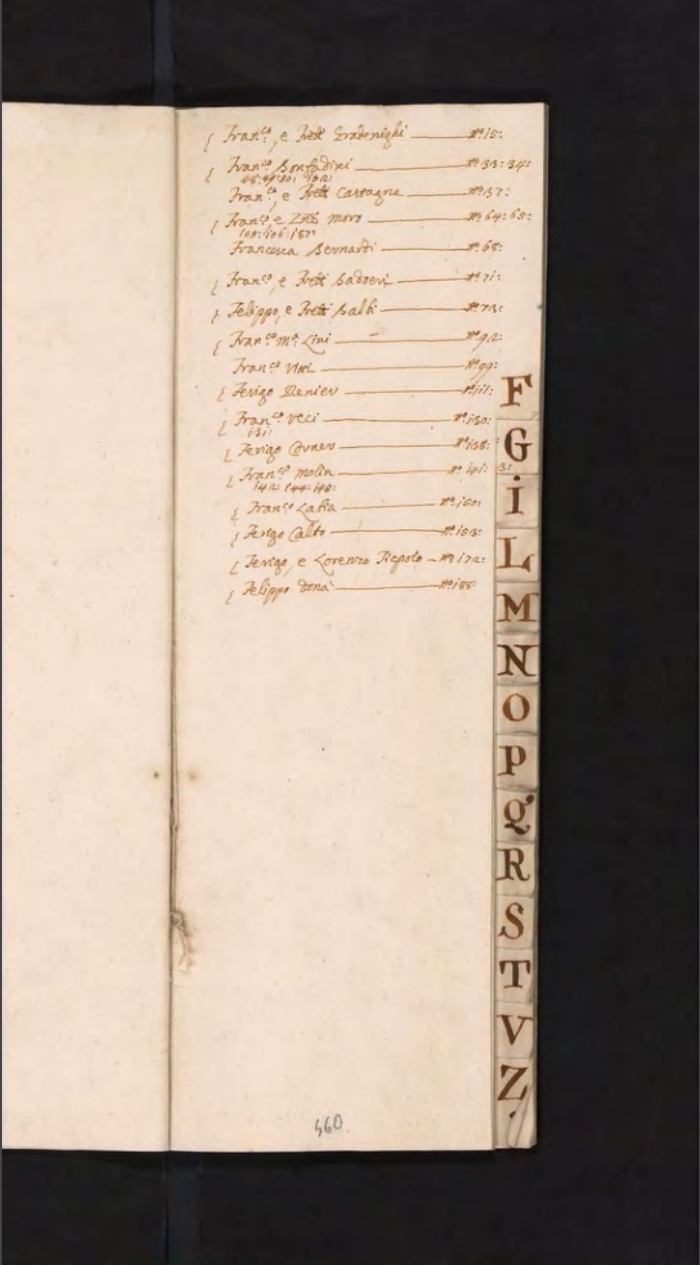 Fran.co, e Fr̃elli Gradenighi — N.o 15:
Fran.co Bonfadini — N.o 33: 34:
Fran.co, e Fr̃elli Castagna — N.o 57:
Fran.co e Zñe Moro — N.o 64: 65:
Francesca Bernardi — N.o 68:
Fran.co, e Fr̃elli Badoeri — N.o 71:
Felippo, e Fr̃elli Balbi — N.o 73:
Fran.co M.a Lini — N.o 92:
Fran.co — N.o 99:
Ferigo Renier — N.o 111:
Fran.co Veci — N.o 130:
131:
Ferigo Corner — N.o 138:
Fran.co Molin — N.o 141:
142: 144: 145:
Fran.co Labia — N.o 150:
Ferigo Calbo — N.o 153:
Ferigo, e Lorenzo — N.o 172:
Felippo Donà — N.o 188:
F
G
I
L
M
N
O
P
Q
R
S
T
V
Z
460